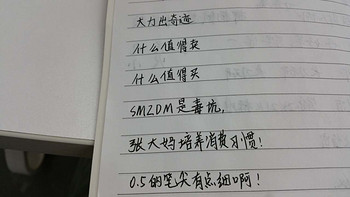 大力出奇迹
什么值得卖
什么值得买
SMZDM是毒坑，
张大妈培养消费习惯！
0.5的笔尖有点细啊！